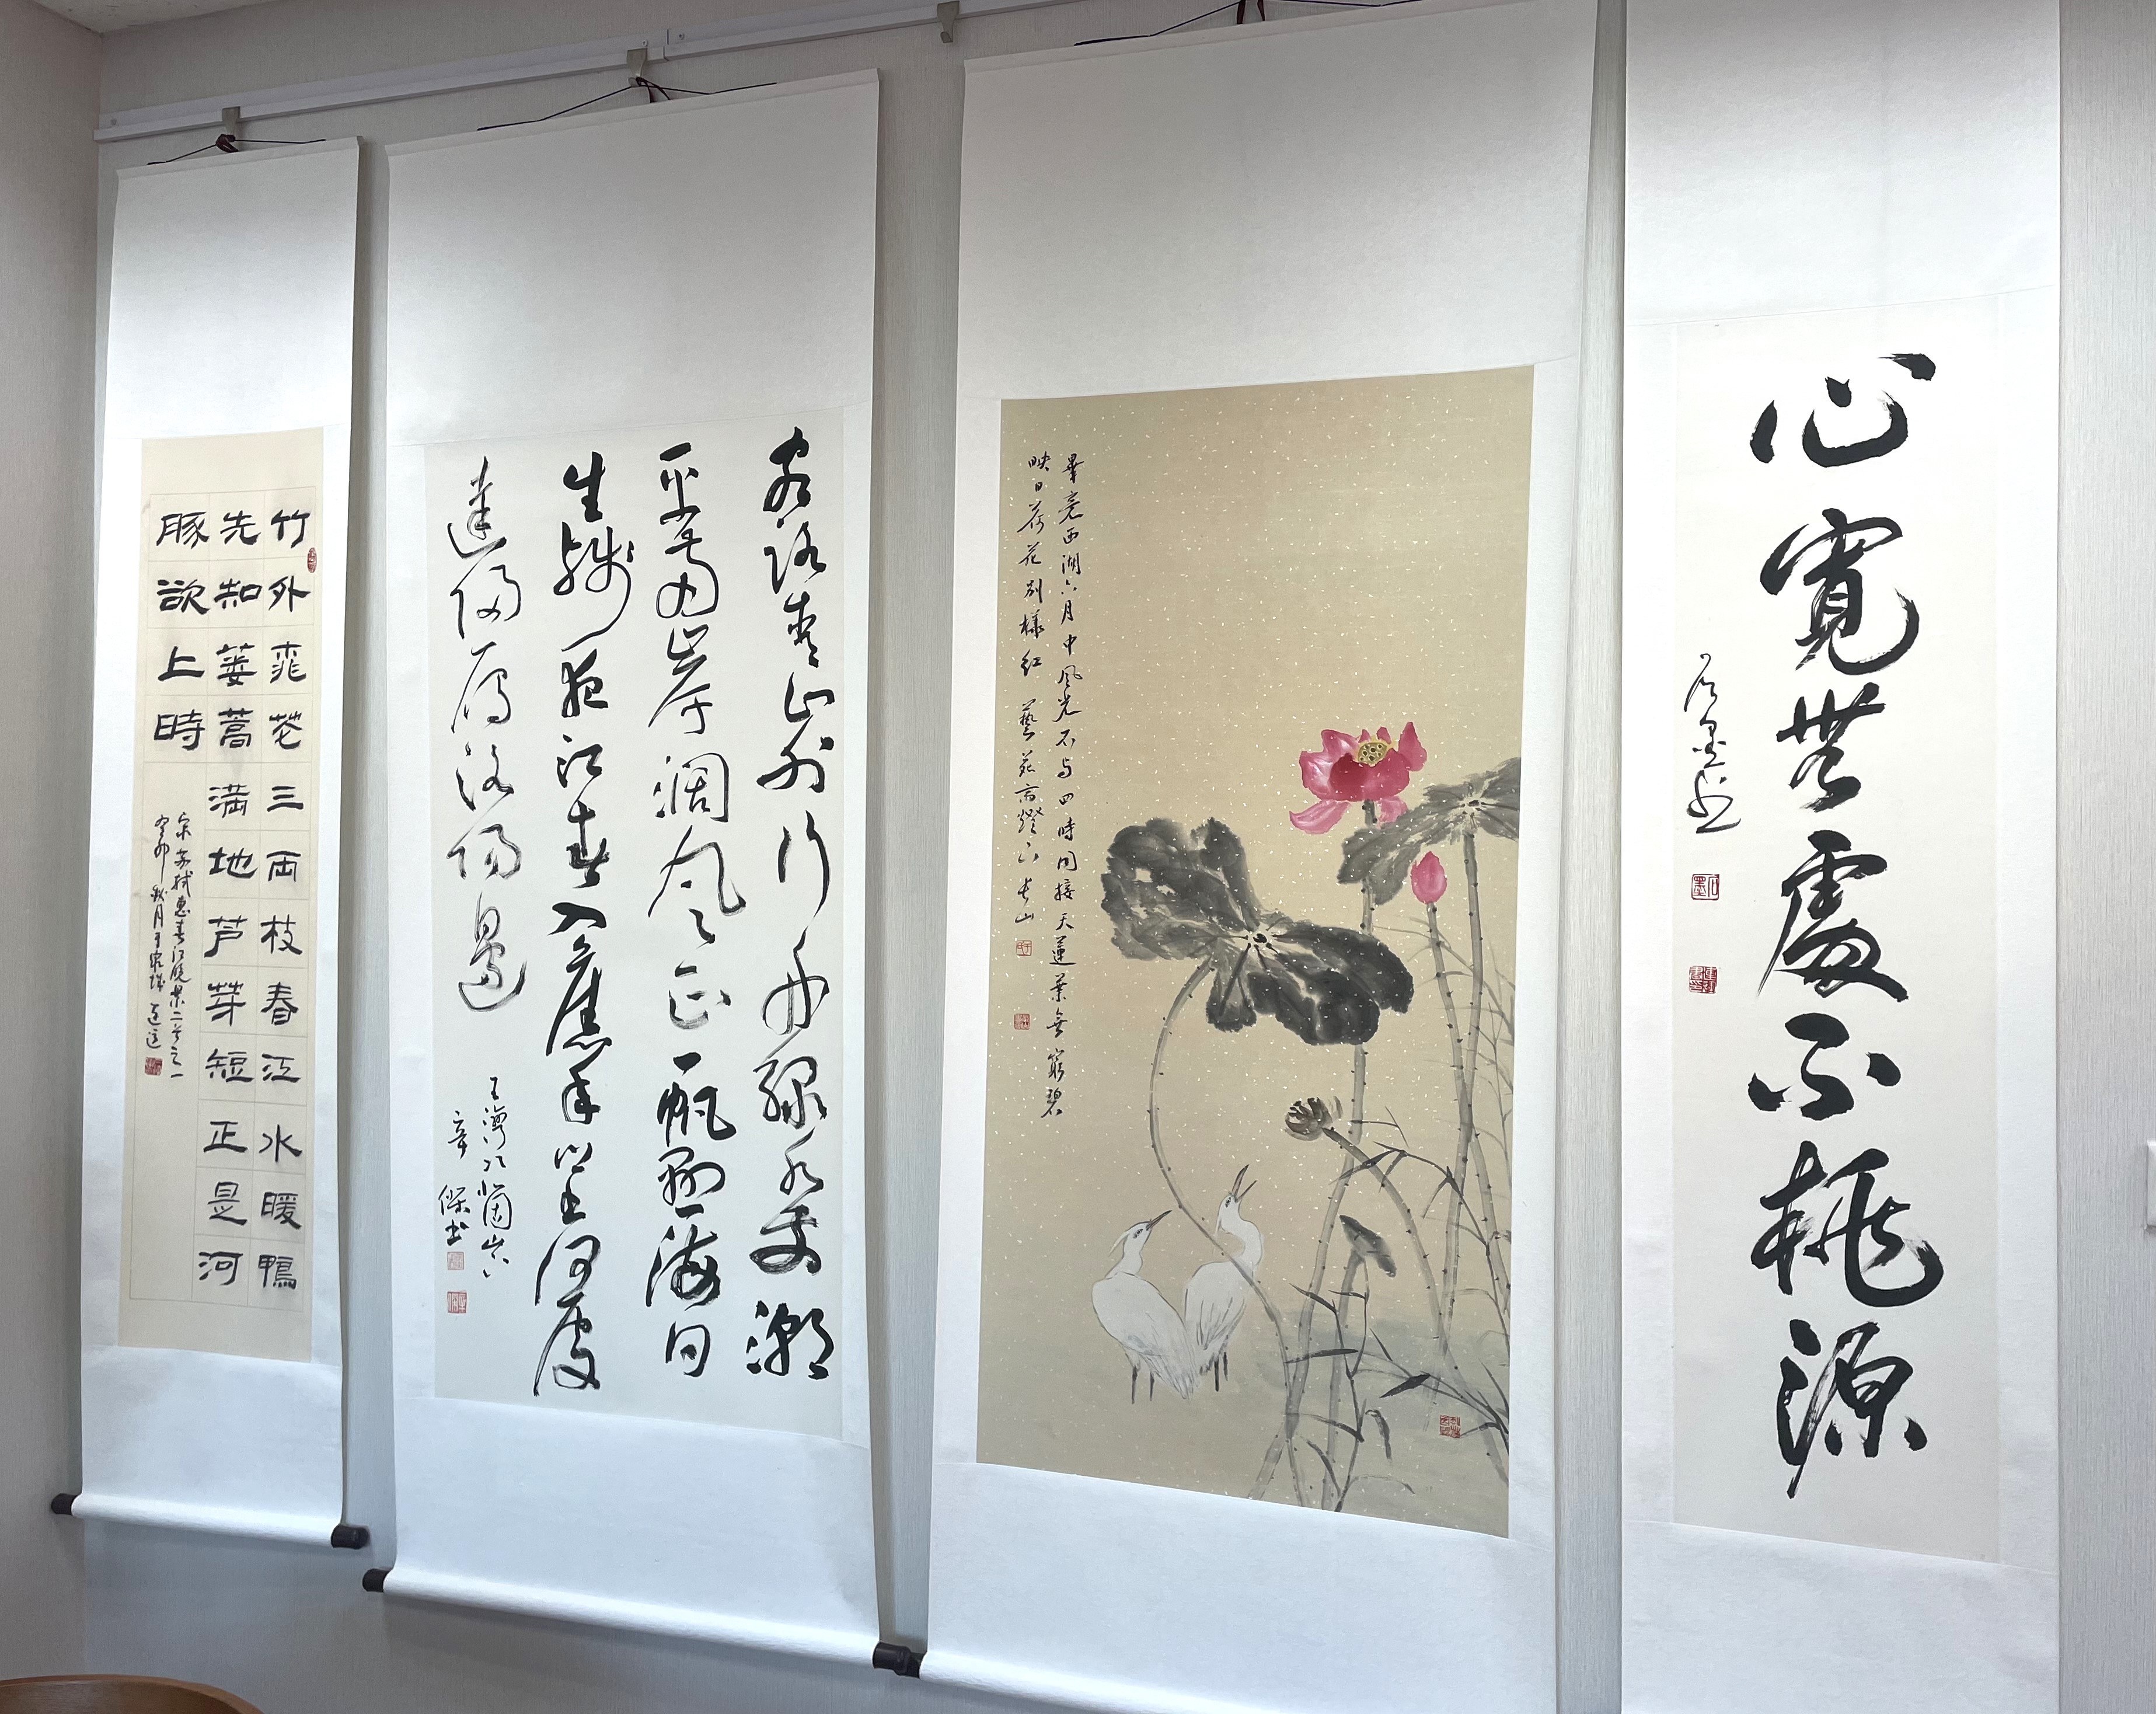 心寬無處不桃源
石墨
畢竟西湖六月中風光不与四時同接天蓮葉無窮碧
映日荷花别樣紅 藝苑
客路青山外行舟緑水前潮
平兩岸闊風正一帆懸海日
生殘夜江春入舊年鄉書何處
達歸雁洛陽邊
王灣次北固山下
章傑书
竹外桃花三両枝春江水暖鴨
先知蔞蒿満地芦芽短正是河
豚欲上時
宋苏轼惠春江晓景二首之一
癸卯秋月